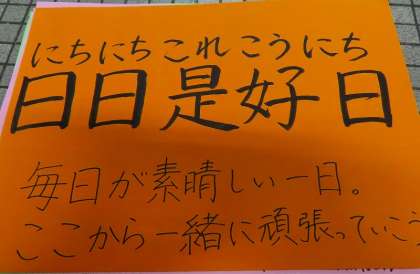 にちにちこれこうにち
日日是好日
毎日が素晴しい一日。
ここから一緒に頑張っていこう